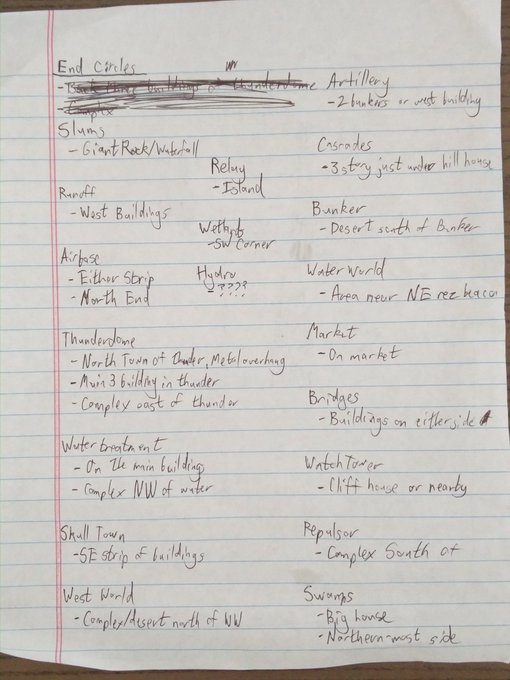 End Circles
- Back three buildings of thunderdome
Complex
Slums
- Giant Rock/Waterfall
Runoff
- West Buildings
Airbase
- Either Strip
- North End
Thunderdome
- North Town of thunder, Metal overhang
- Main 3 building in thunder
- Complex east of thunder
Water treatment
- On The main buildings
- Complex NW of water
Skull Town
- SE strip of buildings
West World
- Complex/desert north of WW
Relay
- Island
Wetlands
- SW Corner
Hydro
- ????
Artillery
- 2 bunkers or west building
Cascades
- 3 story just under hill house
Bunker
- Desert south of Bunker
Water World
- Area near NE rez beacon
Market
- On market
Bridges
- Buildings on either side
Watch Tower
- Cliff house or nearby
Repulsor
- Complex South of
Swamps
- Big house
- Northern-most side